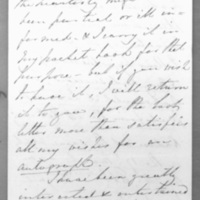 been punctual or ill in-
formed - & I carry it in
my pocket book for the
purpose - but if you wish
to have it, I will return
it to you, for the
letter more than satisfies
all my desires for an
autograph.
I have been greatly
interested & entertained